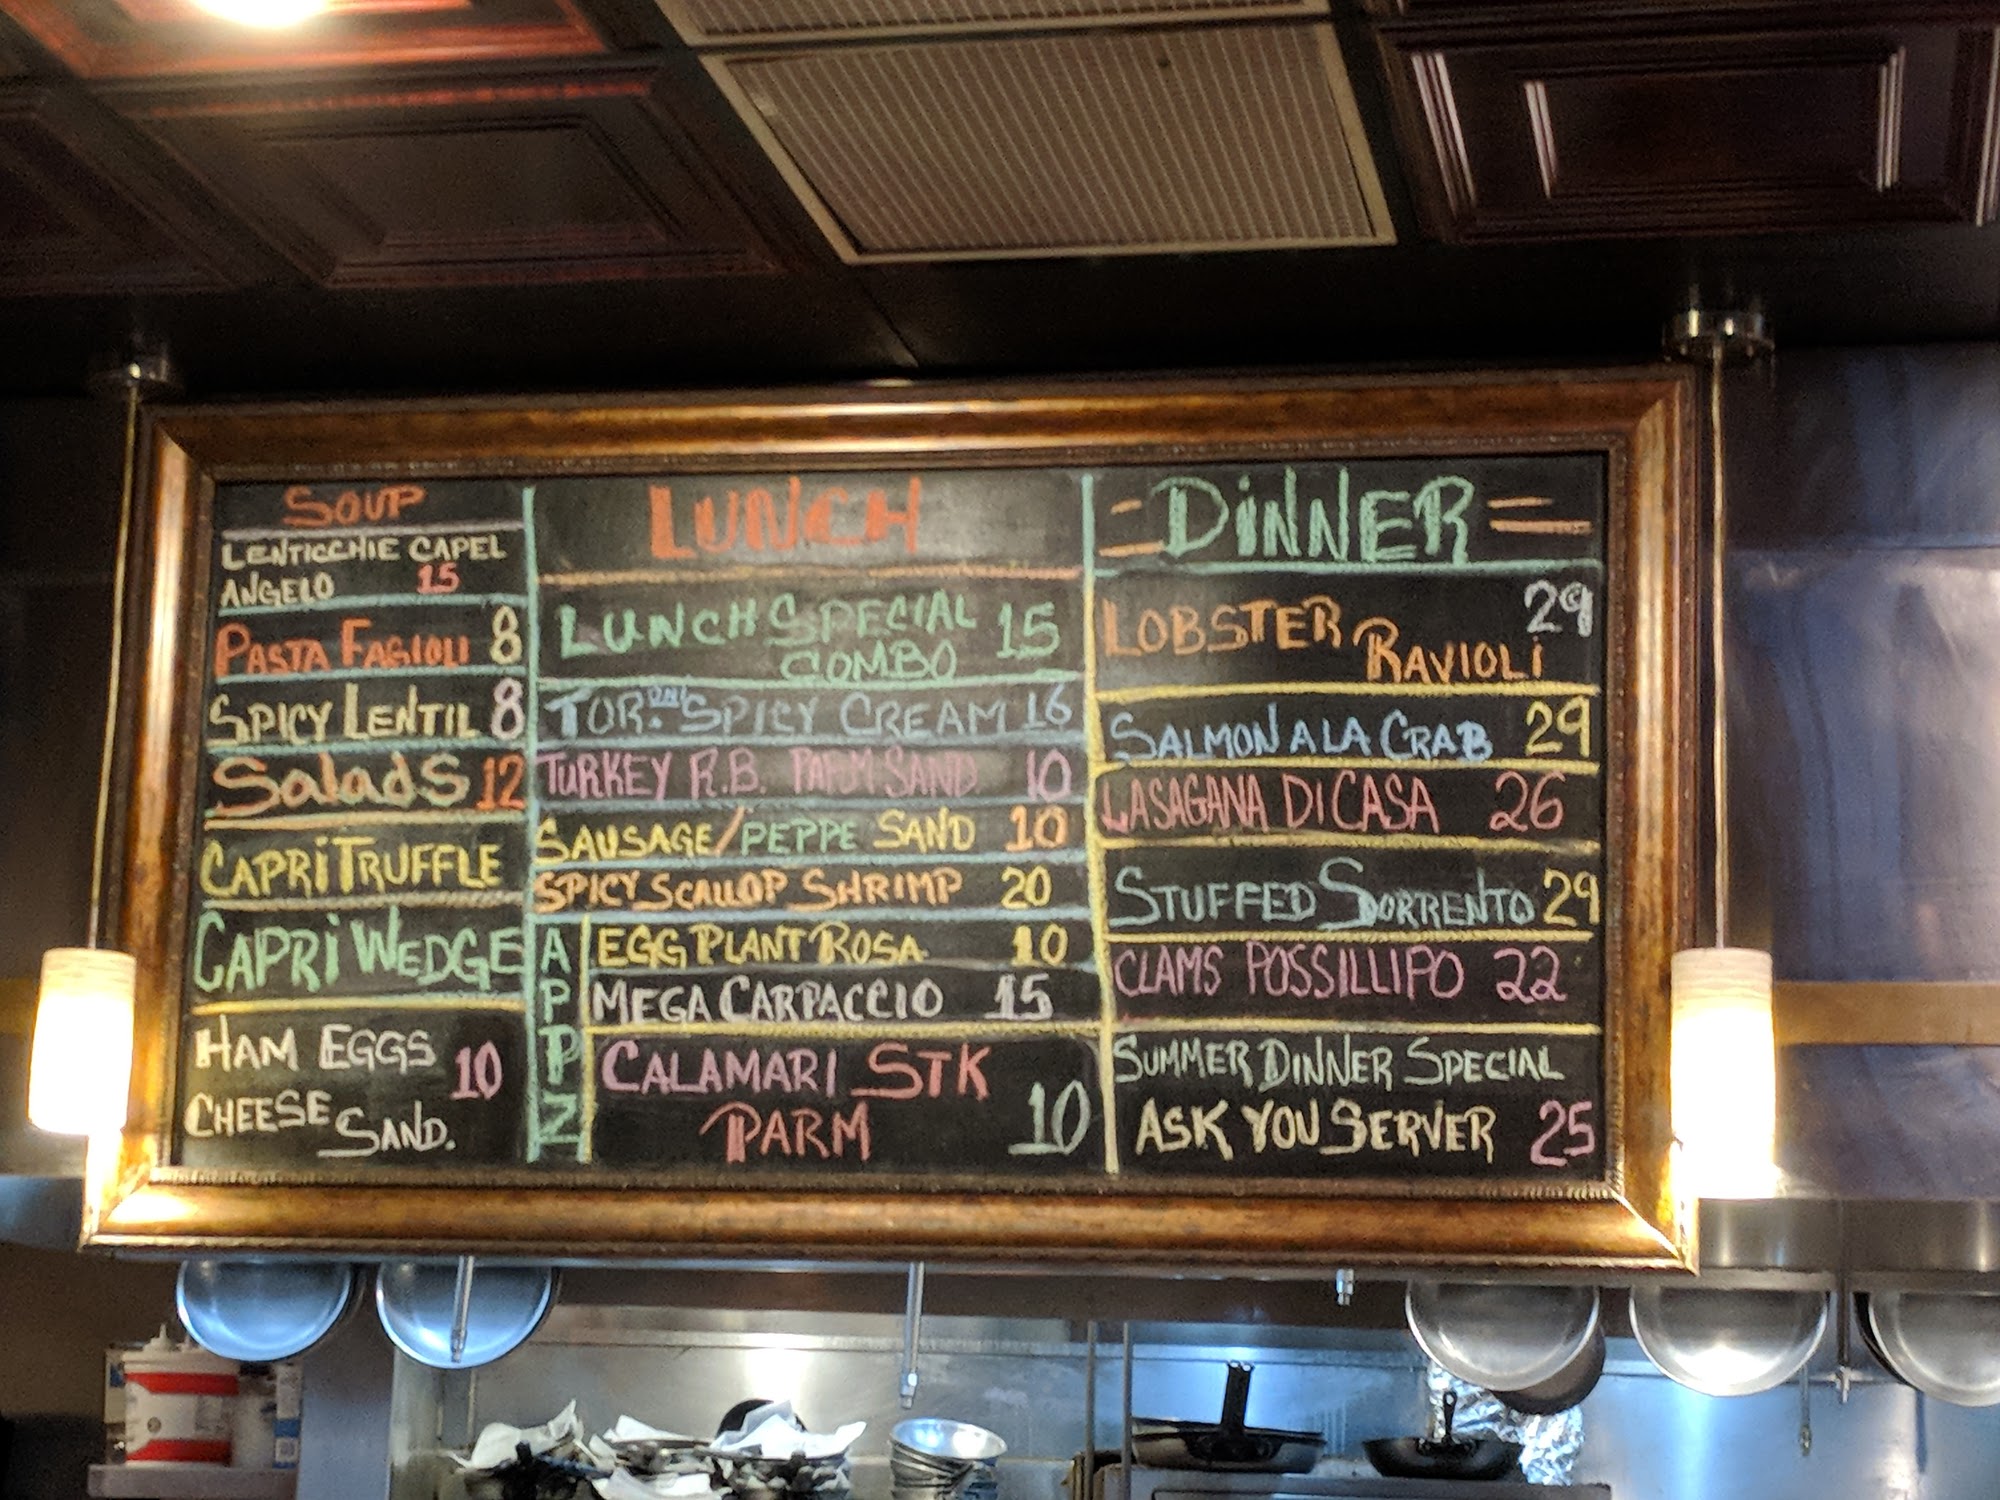 SOUP
LENTICCHIE CAPEL
ANGELO 15
PASTA FAGIOLI 8
SPICY LENTIL 8
SaladS 12
CAPRI TRUFFLE
CAPRI WEDGE
HAM EGGS 10
CHEESE SAND.
LUNCH
LUNCH SPECIAL 15
COMBO
SPICY CREAM 16
TURKEY R.B. PARM SAND. 10
SAUSAGE/PEPPE SAND 10
SPICY SCALLOP SHRIMP 20
APPZ
EGG PLANT ROSA 10
MEGA CARPACCIO 15
CALAMARI STK
PARM 10
= DINNER =
LOBSTER 29
RAVIOLI
SALMON ALA CRAB 29
LASAGANA DI CASA 26
STUFFED SORRENTO 29
CLAMS POSSILLIPO 22
SUMMER DINNER SPECIAL
ASK YOU SERVER 25